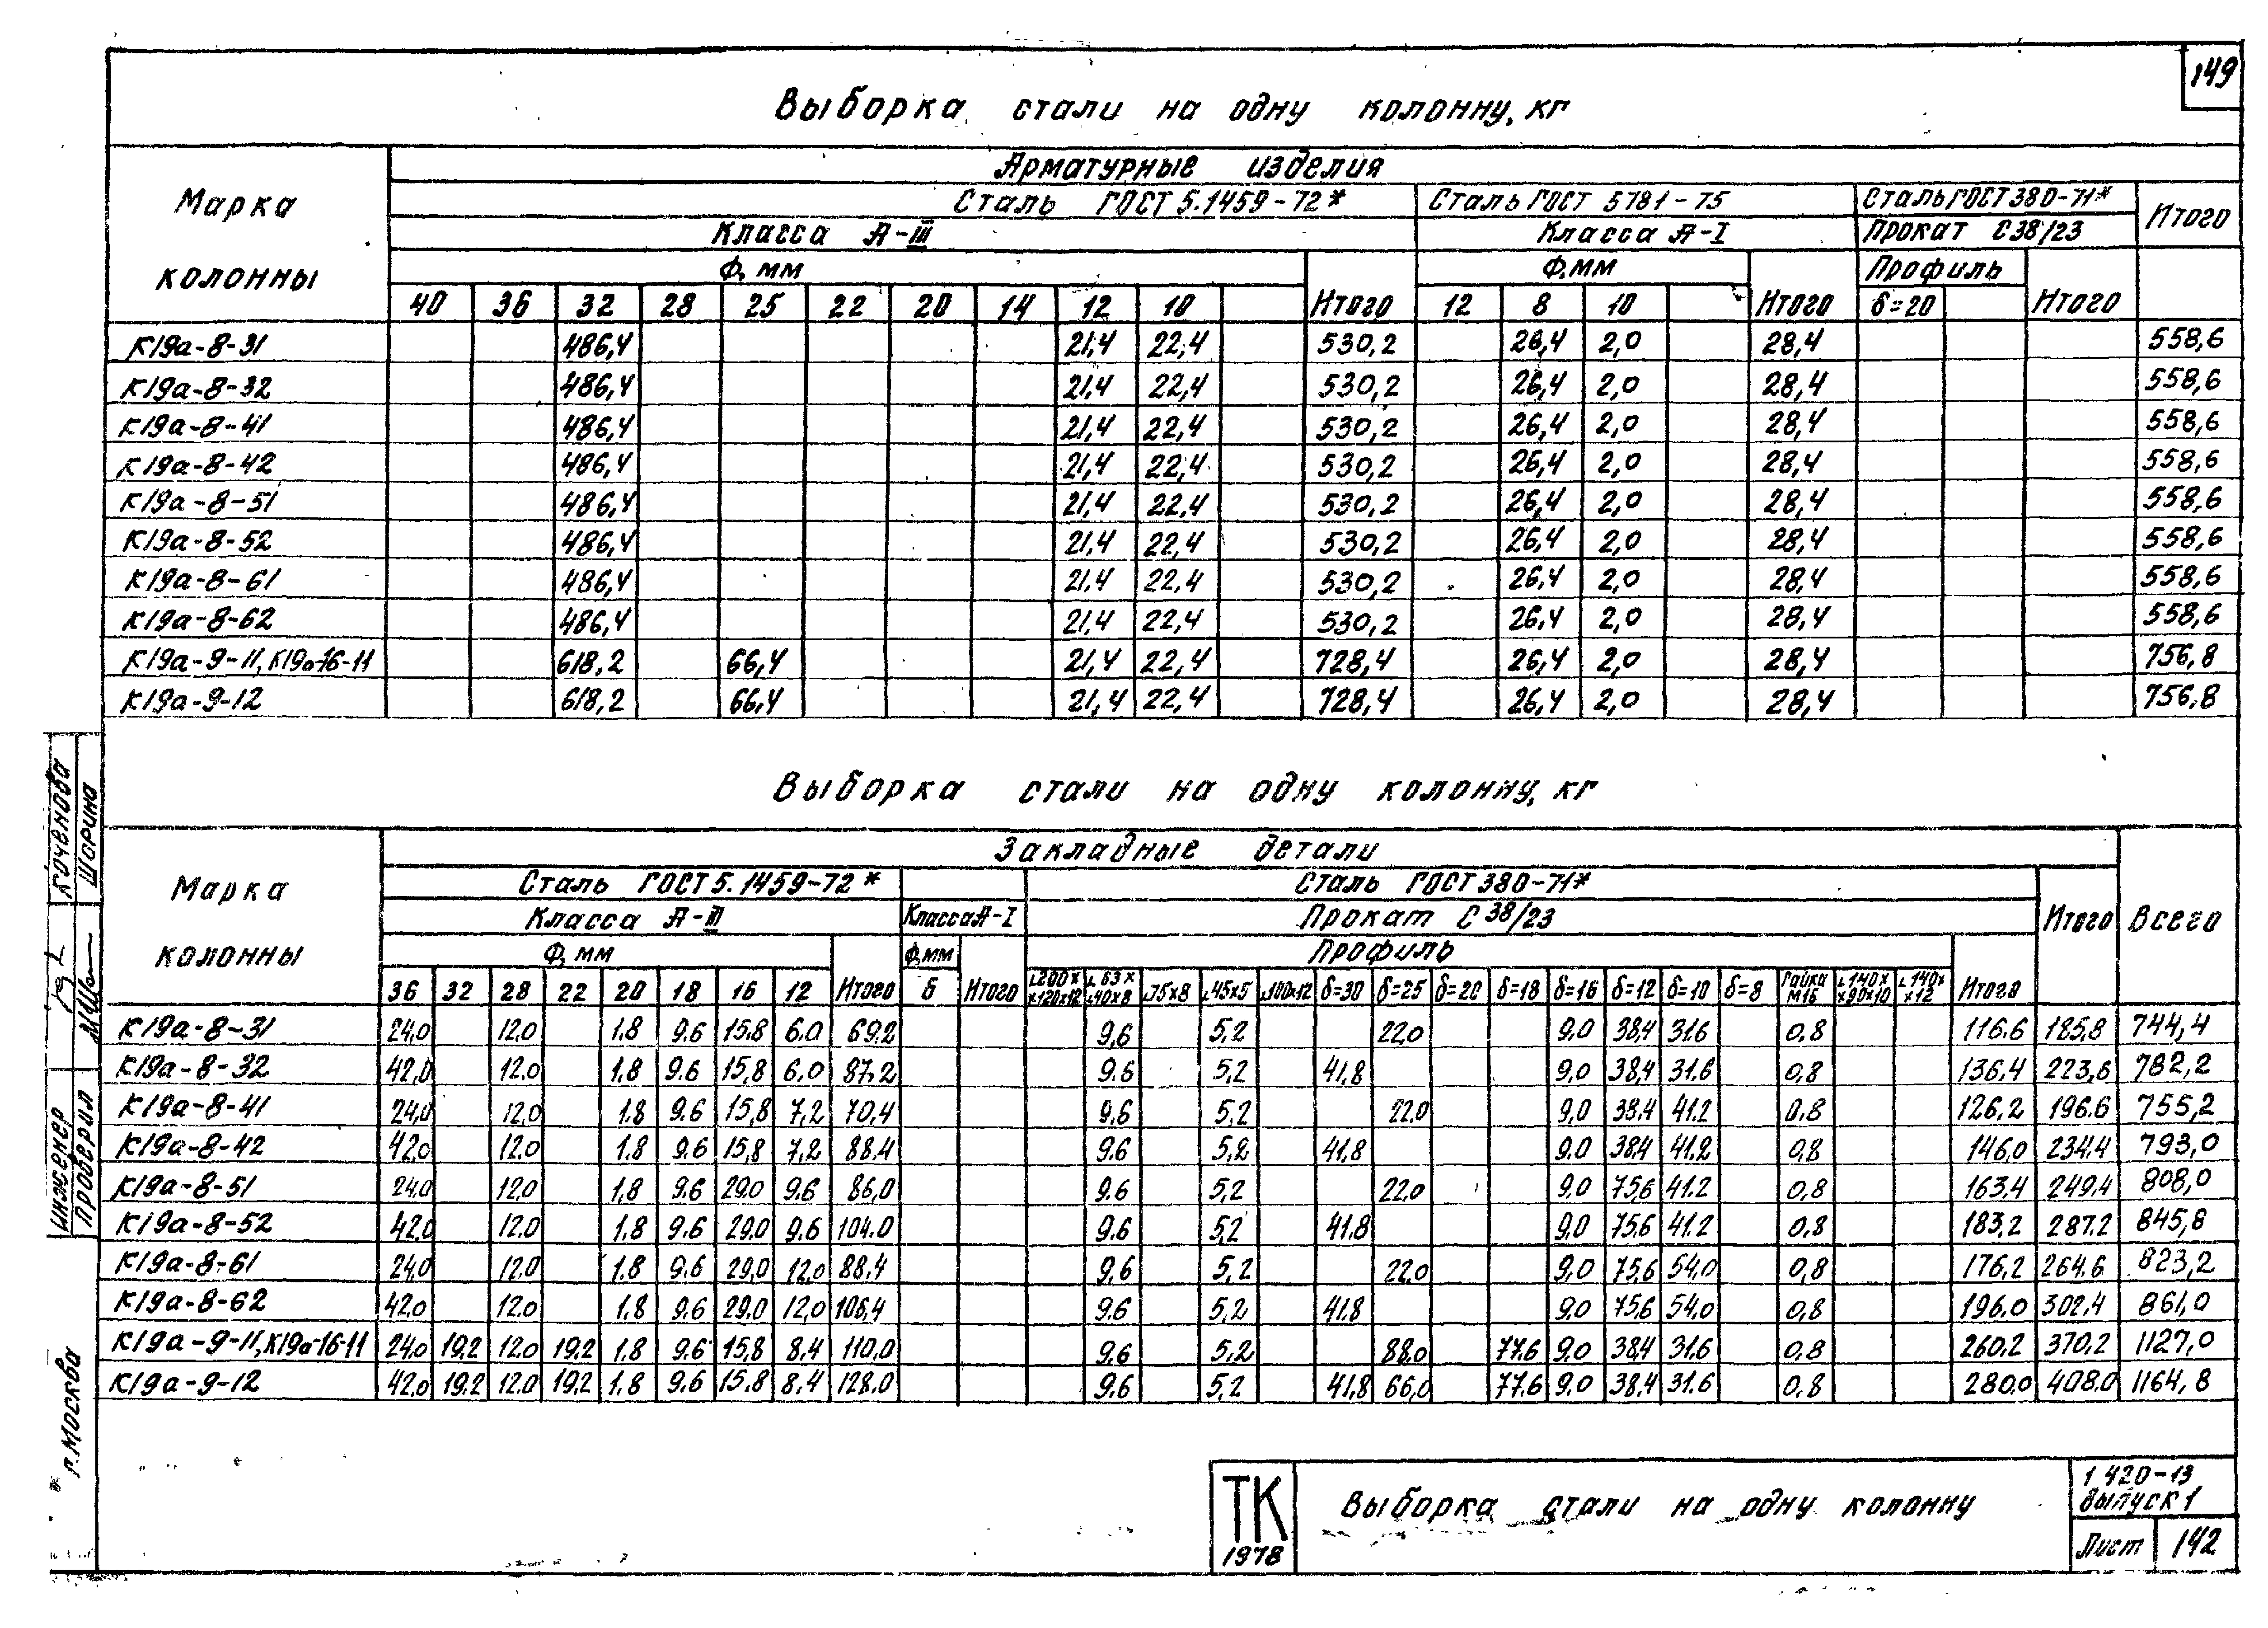 149
Выборка стали на одну колонну, кг
Марка колонны
Арматурные изделия
Сталь ГОСТ 5.1459-72* Сталь ГОСТ 5781-75 Сталь ГОСТ 380-71* Итого
Класса А-III Класса А-I Прокат С38/23
Ф, мм Ф, мм Профиль
40 36 32 28 25 22 20 14 12 10 Итого 12 8 10 Итого δ=20 Итого
К19а-8-31 486,4 21,4 22,4 530,2 26,4 2,0 28,4 558,6
К19а-8-32 486,4 21,4 22,4 530,2 26,4 2,0 28,4 558,6
К19а-8-41 486,4 21,4 22,4 530,2 26,4 2,0 28,4 558,6
К19а-8-42 486,4 21,4 22,4 530,2 26,4 2,0 28,4 558,6
К19а-8-51 486,4 21,4 22,4 530,2 26,4 2,0 28,4 558,6
К19а-8-52 486,4 21,4 22,4 530,2 26,4 2,0 28,4 558,6
К19а-8-61 486,4 21,4 22,4 530,2 26,4 2,0 28,4 558,6
К19а-8-62 486,4 21,4 22,4 530,2 26,4 2,0 28,4 558,6
К19а-9-11, К19а-16-11 618,2 66,4 21,4 22,4 728,4 26,4 2,0 28,4 756,8
К19а-9-12 618,2 66,4 21,4 22,4 728,4 26,4 2,0 28,4 756,8
Выборка стали на одну колонну, кг
Марка колонны
Закладные детали
Сталь ГОСТ 5.1459-72* Сталь ГОСТ 380-71* Итого Всего
Класса А-III Класса А-I Прокат С 38/23
Ф, мм Ф, мм Профиль
36 32 28 22 20 18 16 12 Итого 6 Итого ∟200х х120х12 ∟63х ∟40х8 ∟75х8 ∟45х5 ∟100х12 δ=30 δ=25 δ=20 δ=18 δ=16 δ=12 δ=10 δ=8 Гайка М16 ∟140х х90х10 ∟140х х12 Итого
К19а-8-31 24,0 12,0 1,8 9,6 15,8 6,0 69,2 9,6 5,2 22,0 9,0 38,4 31,6 0,8 116,6 185,8 744,4
К19а-8-32 42,0 12,0 1,8 9,6 15,8 6,0 87,2 9,6 5,2 41,8 9,0 38,4 31,6 0,8 136,4 223,6 782,2
К19а-8-41 24,0 12,0 1,8 9,6 15,8 7,2 70,4 9,6 5,2 22,0 9,0 38,4 41,2 0,8 126,2 196,6 755,2
К19а-8-42 42,0 12,0 1,8 9,6 15,8 7,2 88,4 9,6 5,2 41,8 9,0 38,4 41,2 0,8 146,0 234,4 793,0
К19а-8-51 24,0 12,0 1,8 9,6 29,0 9,6 86,0 9,6 5,2 22,0 9,0 75,6 41,2 0,8 163,4 249,4 808,0
К19а-8-52 42,0 12,0 1,8 9,6 29,0 9,6 104,0 9,6 5,2 41,8 9,0 75,6 41,2 0,8 183,2 287,2 845,8
К19а-8-61 24,0 12,0 1,8 9,6 29,0 12,0 88,4 9,6 5,2 22,0 9,0 75,6 54,0 0,8 176,2 264,6 823,2
К19а-8-62 42,0 12,0 1,8 9,6 29,0 12,0 106,4 9,6 5,2 41,8 9,0 75,6 54,0 0,8 196,0 302,4 861,0
К19а-9-11, К19а-16-11 24,0 19,2 12,0 19,2 1,8 9,6 15,8 8,4 110,0 9,6 5,2 88,0 77,6 9,0 38,4 31,6 0,8 260,2 370,2 1127,0
К19а-9-12 42,0 19,2 12,0 19,2 1,8 9,6 15,8 8,4 128,0 9,6 5,2 41,8 66,0 77,6 9,0 38,4 31,6 0,8 280,0 408,0 1164,8
Инженер Коченова
Проверил Шарина
г. Москва
ТК
1978
Выборка стали на одну колонну
1.420-13
Выпуск 1
Лист 142